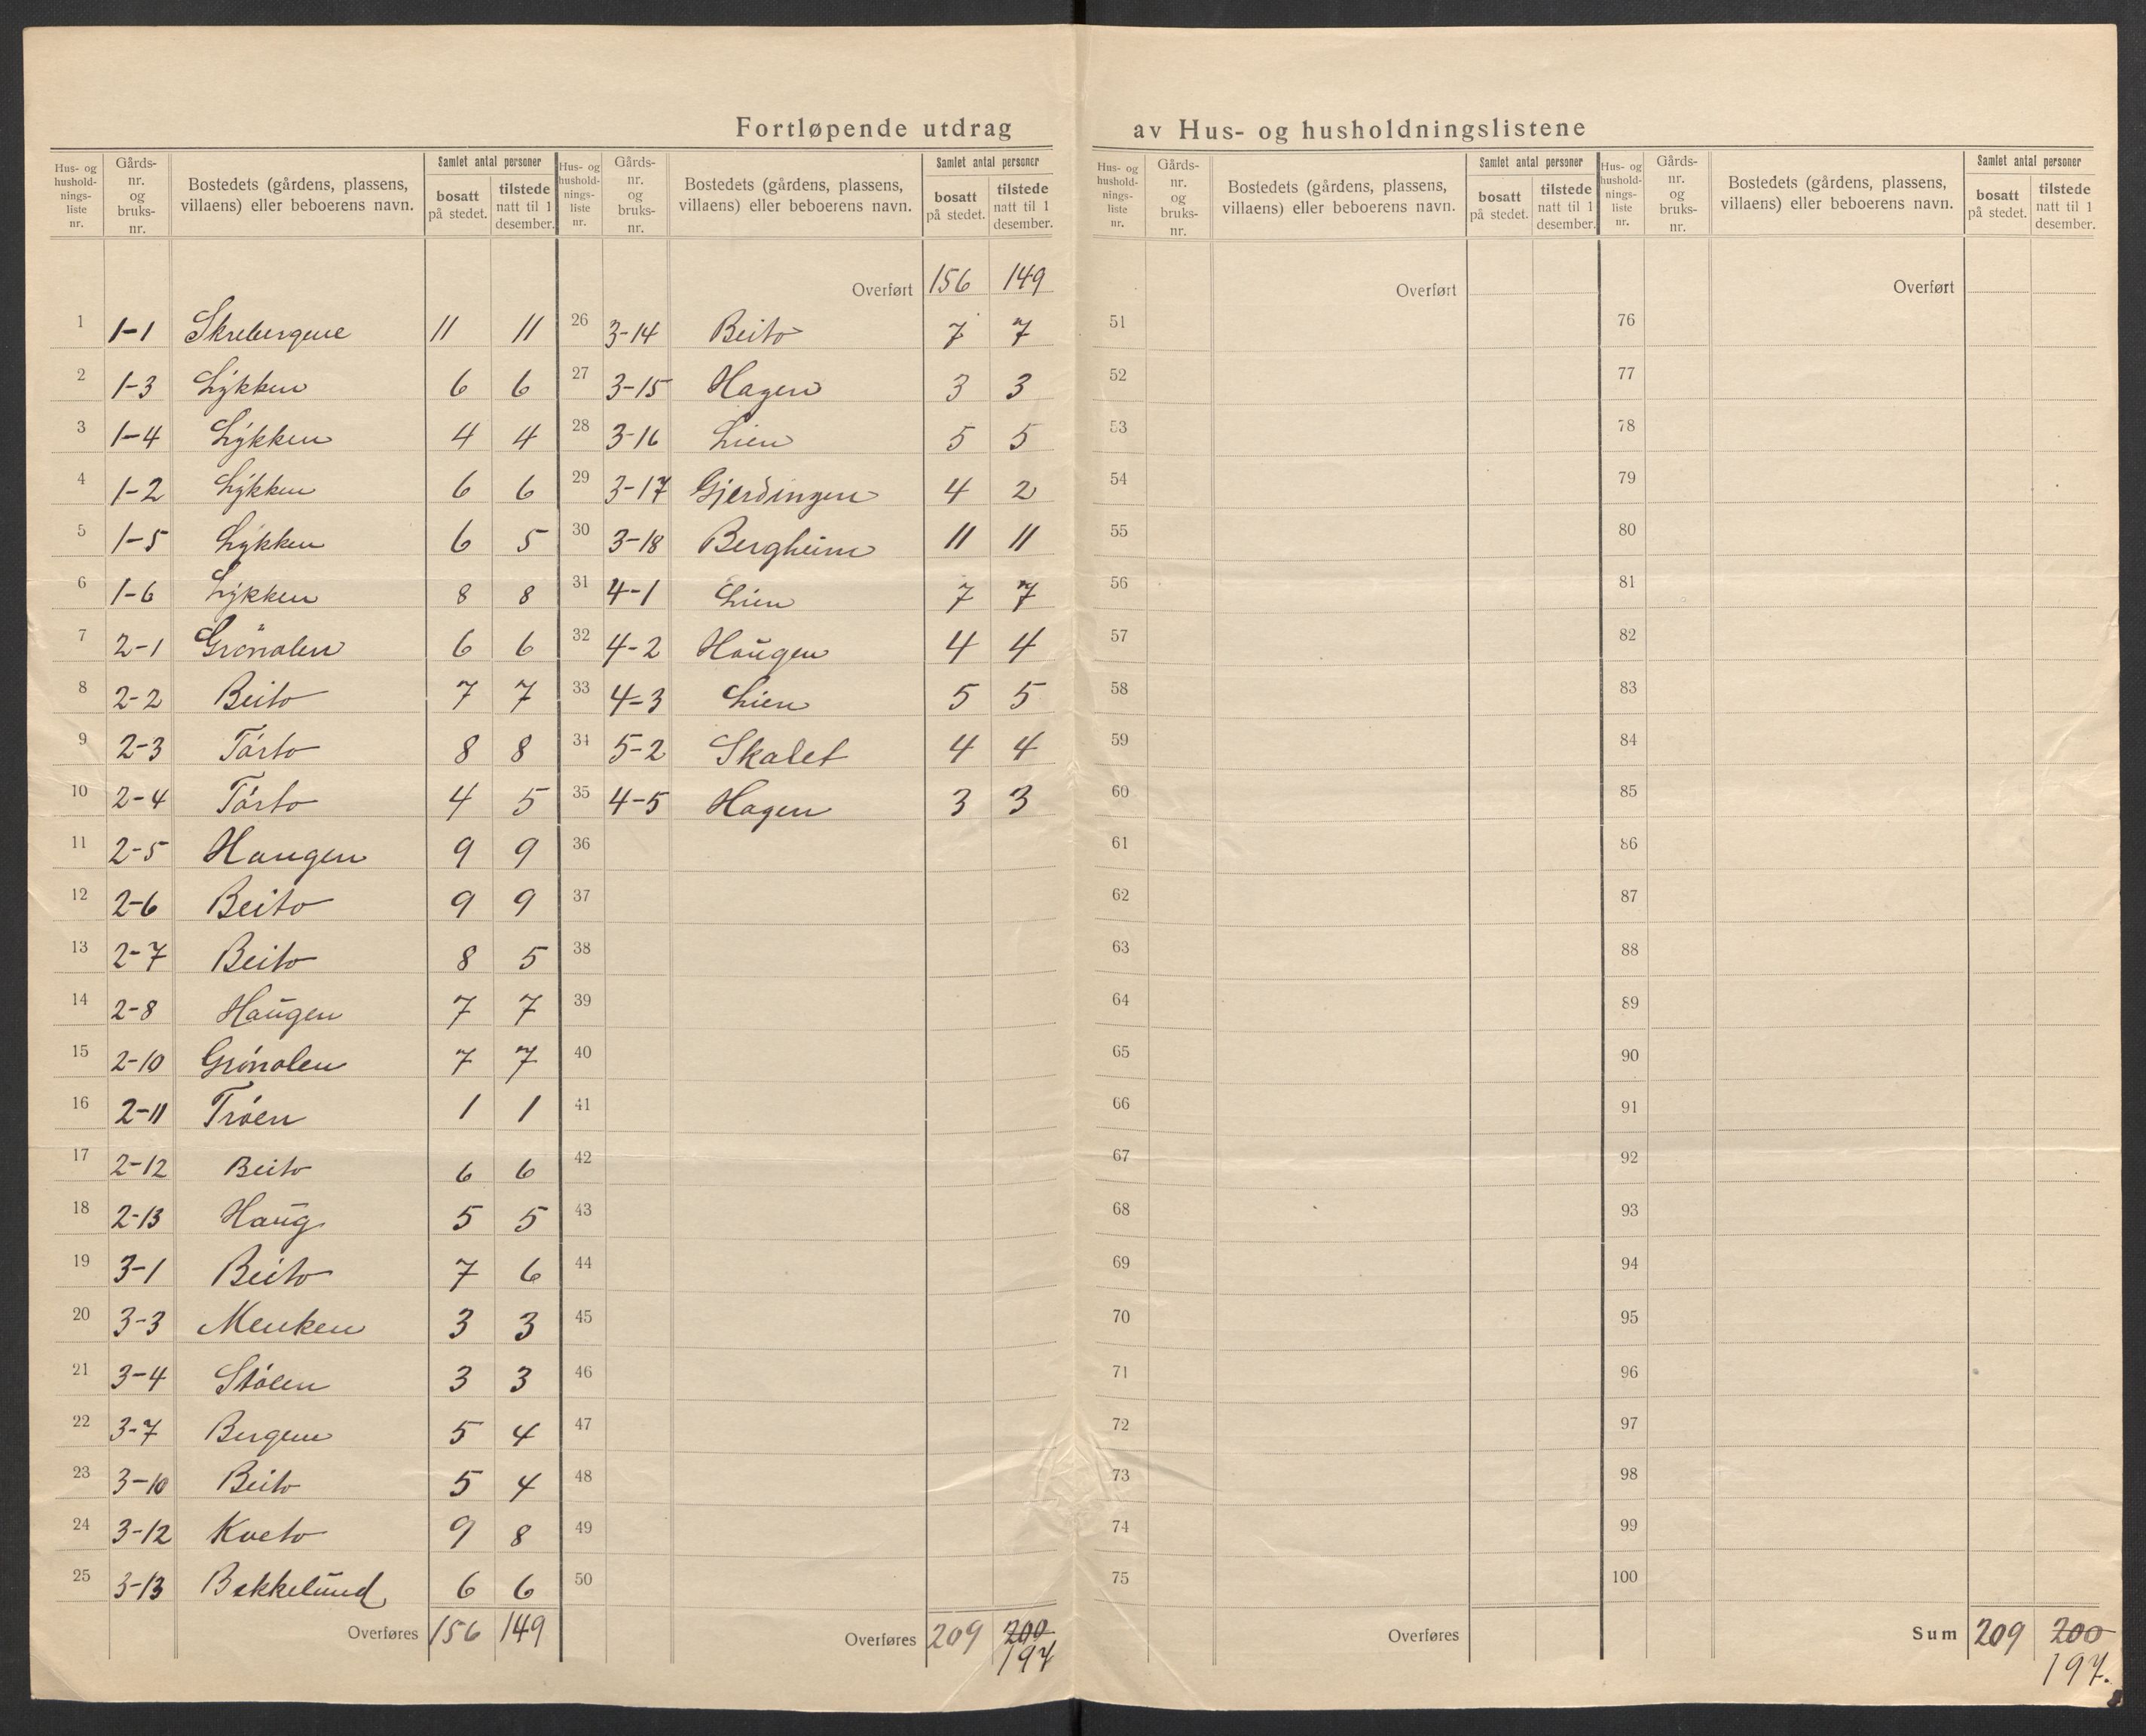 Fortløpende utdrag av Hus- og husholdningslistene
Hus- og husholdningsliste nr. | Gårds- nr. og bruks- nr. | Bostedets (gårdens, plassens, villaens) eller beboerens navn. | Samlet antal personer bosatt på stedet. | tilstede natt til 1 desember.
1 1-1 Skrebergene 11 11
2 1-3 Lykken 6 6
3 1-4 Lykken 4 4
4 1-2 Lykken 6 6
5 1-5 Lykken 6 5
6 1-6 Lykken 8 8
7 2-1 Grønolen 6 6
8 2-2 Beito 7 7
9 2-3 Tørto 8 8
10 2-4 Tørto 4 5
11 2-5 Haugen 9 9
12 2-6 Beito 9 9
13 2-7 Beito 8 5
14 2-8 Haugen 7 7
15 2-10 Grønolen 7 7
16 2-11 Trøen 1 1
17 2-12 Beito 6 6
18 2-13 Haug 5 5
19 3-1 Beito 7 6
20 3-3 Menken 3 3
21 3-4 Stølen 3 3
22 3-7 Bergene 5 4
23 3-10 Beito 5 4
24 3-12 Kveto 9 8
25 3-13 Bekkelund 6 6
Overføres 156 149
Hus- og husholdningsliste nr. | Gårds- nr. og bruks- nr. | Bostedets (gårdens, plassens, villaens) eller beboerens navn. | Samlet antal personer bosatt på stedet. | tilstede natt til 1 desember.
Overført 156 149
26 3-14 Beito 7 7
27 3-15 Hagen 3 3
28 3-16 Lien 5 5
29 3-17 Gjerdingen 4 2
30 3-18 Bergheim 11 11
31 4-1 Lien 7 7
32 4-2 Haugen 4 4
33 4-3 Lien 5 5
34 5-2 Skalet 4 4
35 4-5 Hagen 3 3
36
37
38
39
40
41
42
43
44
45
46
47
48
49
50
Overføres 209 200
197
Hus- og husholdningsliste nr. | Gårds- nr. og bruks- nr. | Bostedets (gårdens, plassens, villaens) eller beboerens navn. | Samlet antal personer bosatt på stedet. | tilstede natt til 1 desember.
Overført
51
52
53
54
55
56
57
58
59
60
61
62
63
64
65
66
67
68
69
70
71
72
73
74
75
Overføres
Hus- og husholdningsliste nr. | Gårds- nr. og bruks- nr. | Bostedets (gårdens, plassens, villaens) eller beboerens navn. | Samlet antal personer bosatt på stedet. | tilstede natt til 1 desember.
Overført
76
77
78
79
80
81
82
83
84
85
86
87
88
89
90
91
92
93
94
95
96
97
98
99
100
Sum 209 200
197.